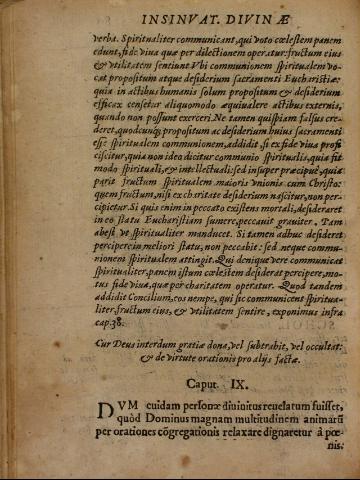 INSINVAT. DIVINÆ
verba. Spiritualiter communicant, qui voto cœlestem panem
edunt, fide viua quæ per dilectionem operatur: fructum eius
& vtilitatem sentiunt. Vbi communionem spiritualem vo-
cat propositum atque desiderium sacramenti Eucharistiæ:
quia in actibus humanis solum propositum & desiderium
efficax censetur aliquomodo æquiualere actibus externis,
quando non possunt exerceri. Ne tamen quispiam falsus cre-
deret, quodcunq; propositum ac desiderium huius sacramenti
esse spiritualem communionem, addidit, si ex fide viua profi
ciscitur, quia non ideo dicitur communio spiritualis, quia fit
modo spirituali, & intellectuali: sed insuper præcipuè, quia
parit fructum spiritualem maioris vnionis cum Christo:
quem fructum, nisi ex charitate desiderium nascitur, non per-
cipietur. Si quis enim in peccato existens mortali, desideraret
in eo statu Eucharistiam sumere, peccauit grauiter. Tam
abest vt spiritualiter manducet. Si tamen adhuc desideret
percipere in meliori statu, non peccabit: sed neque commu-
nionem spiritualem attingit. Qui denique vere communicat
spiritualiter, panem istum cœlestem desiderat percipere, mo-
tus fide viua, quæ per charitatem operatur. Quod tandem
addidit Concilium, eos nempe, qui sic communicent spiritua-
liter, fructum eius, & vtilitatem sentire, exponimus infra
cap. 38.
Cur Deus interdum gratiæ dona, vel subtrahit, vel occultat:
& de virtute orationis pro alijs factæ.
Caput. IX.
DVM cuidam personæ diuinitus reuelatum fuisset,
quòd Dominus magnam multitudinem animarū
per orationes cōgregationis relaxare dignaretur à pœ-
nis: